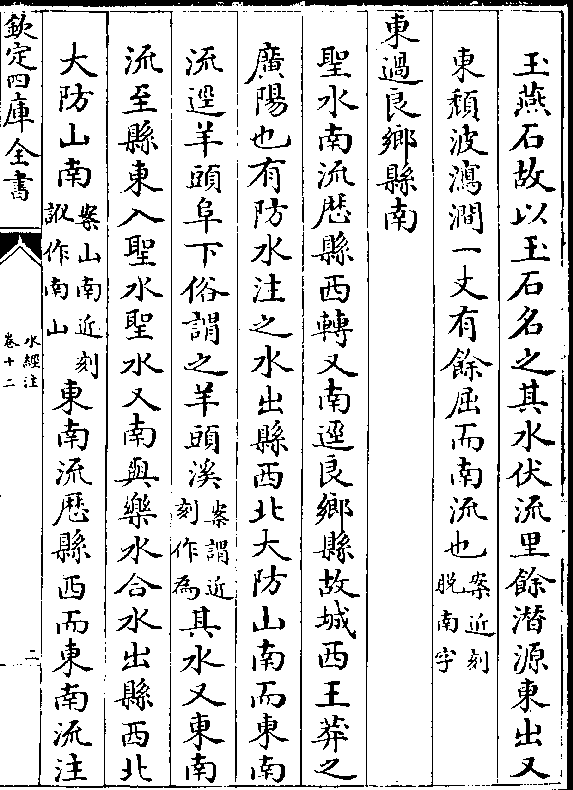 玉燕石故以玉石名之其水伏流里餘潜源東出又
東頽波瀉澗一丈有餘屈而南流也案近刻脱南字
東過良鄉縣南
聖水南流歴縣西轉又南逕良鄉縣故城西王莽之
廣陽也有防水注之水出縣西北大防山南而東南
流逕羊頭阜下俗謂之羊頭溪案謂近刻作為其水又東南
流至縣東入聖水聖水又南與樂水合水出縣西北
大防山南案山南近刻訛作南山東南流歴縣西而東南流注
欽定四庫全書
水經注
卷十二
二